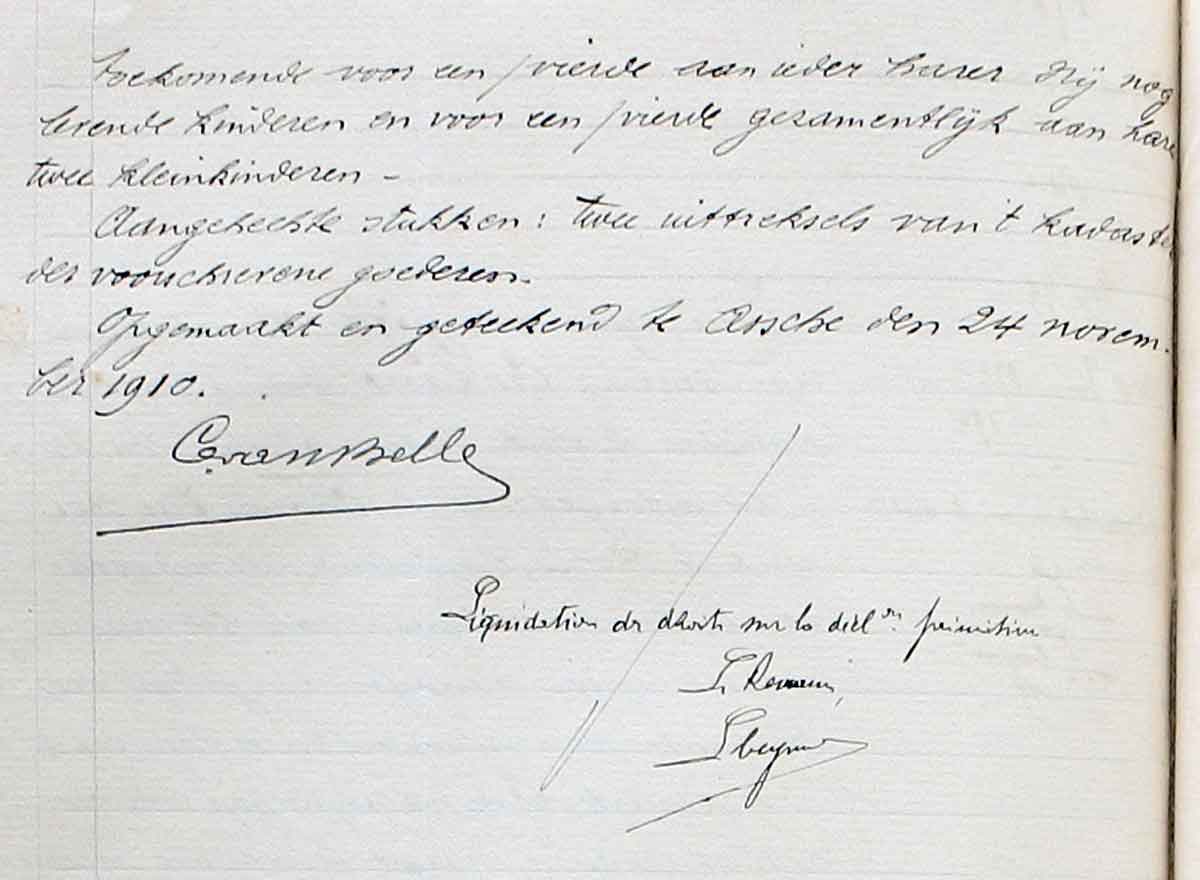 toekomende voor een vierde aan ieder harer drij nog
levende kinderen en voor een vierde gezamentlijk aan hare
twee kleinkinderen -
Aangehechte stukken: twee uittreksels van 't kadaste
der voorschrevene goederen.
Opgemaakt en geteekend te Assche den 24 novem-
ber 1910.
C. van Belle
Liquidation de droits sur la décl.on primitive